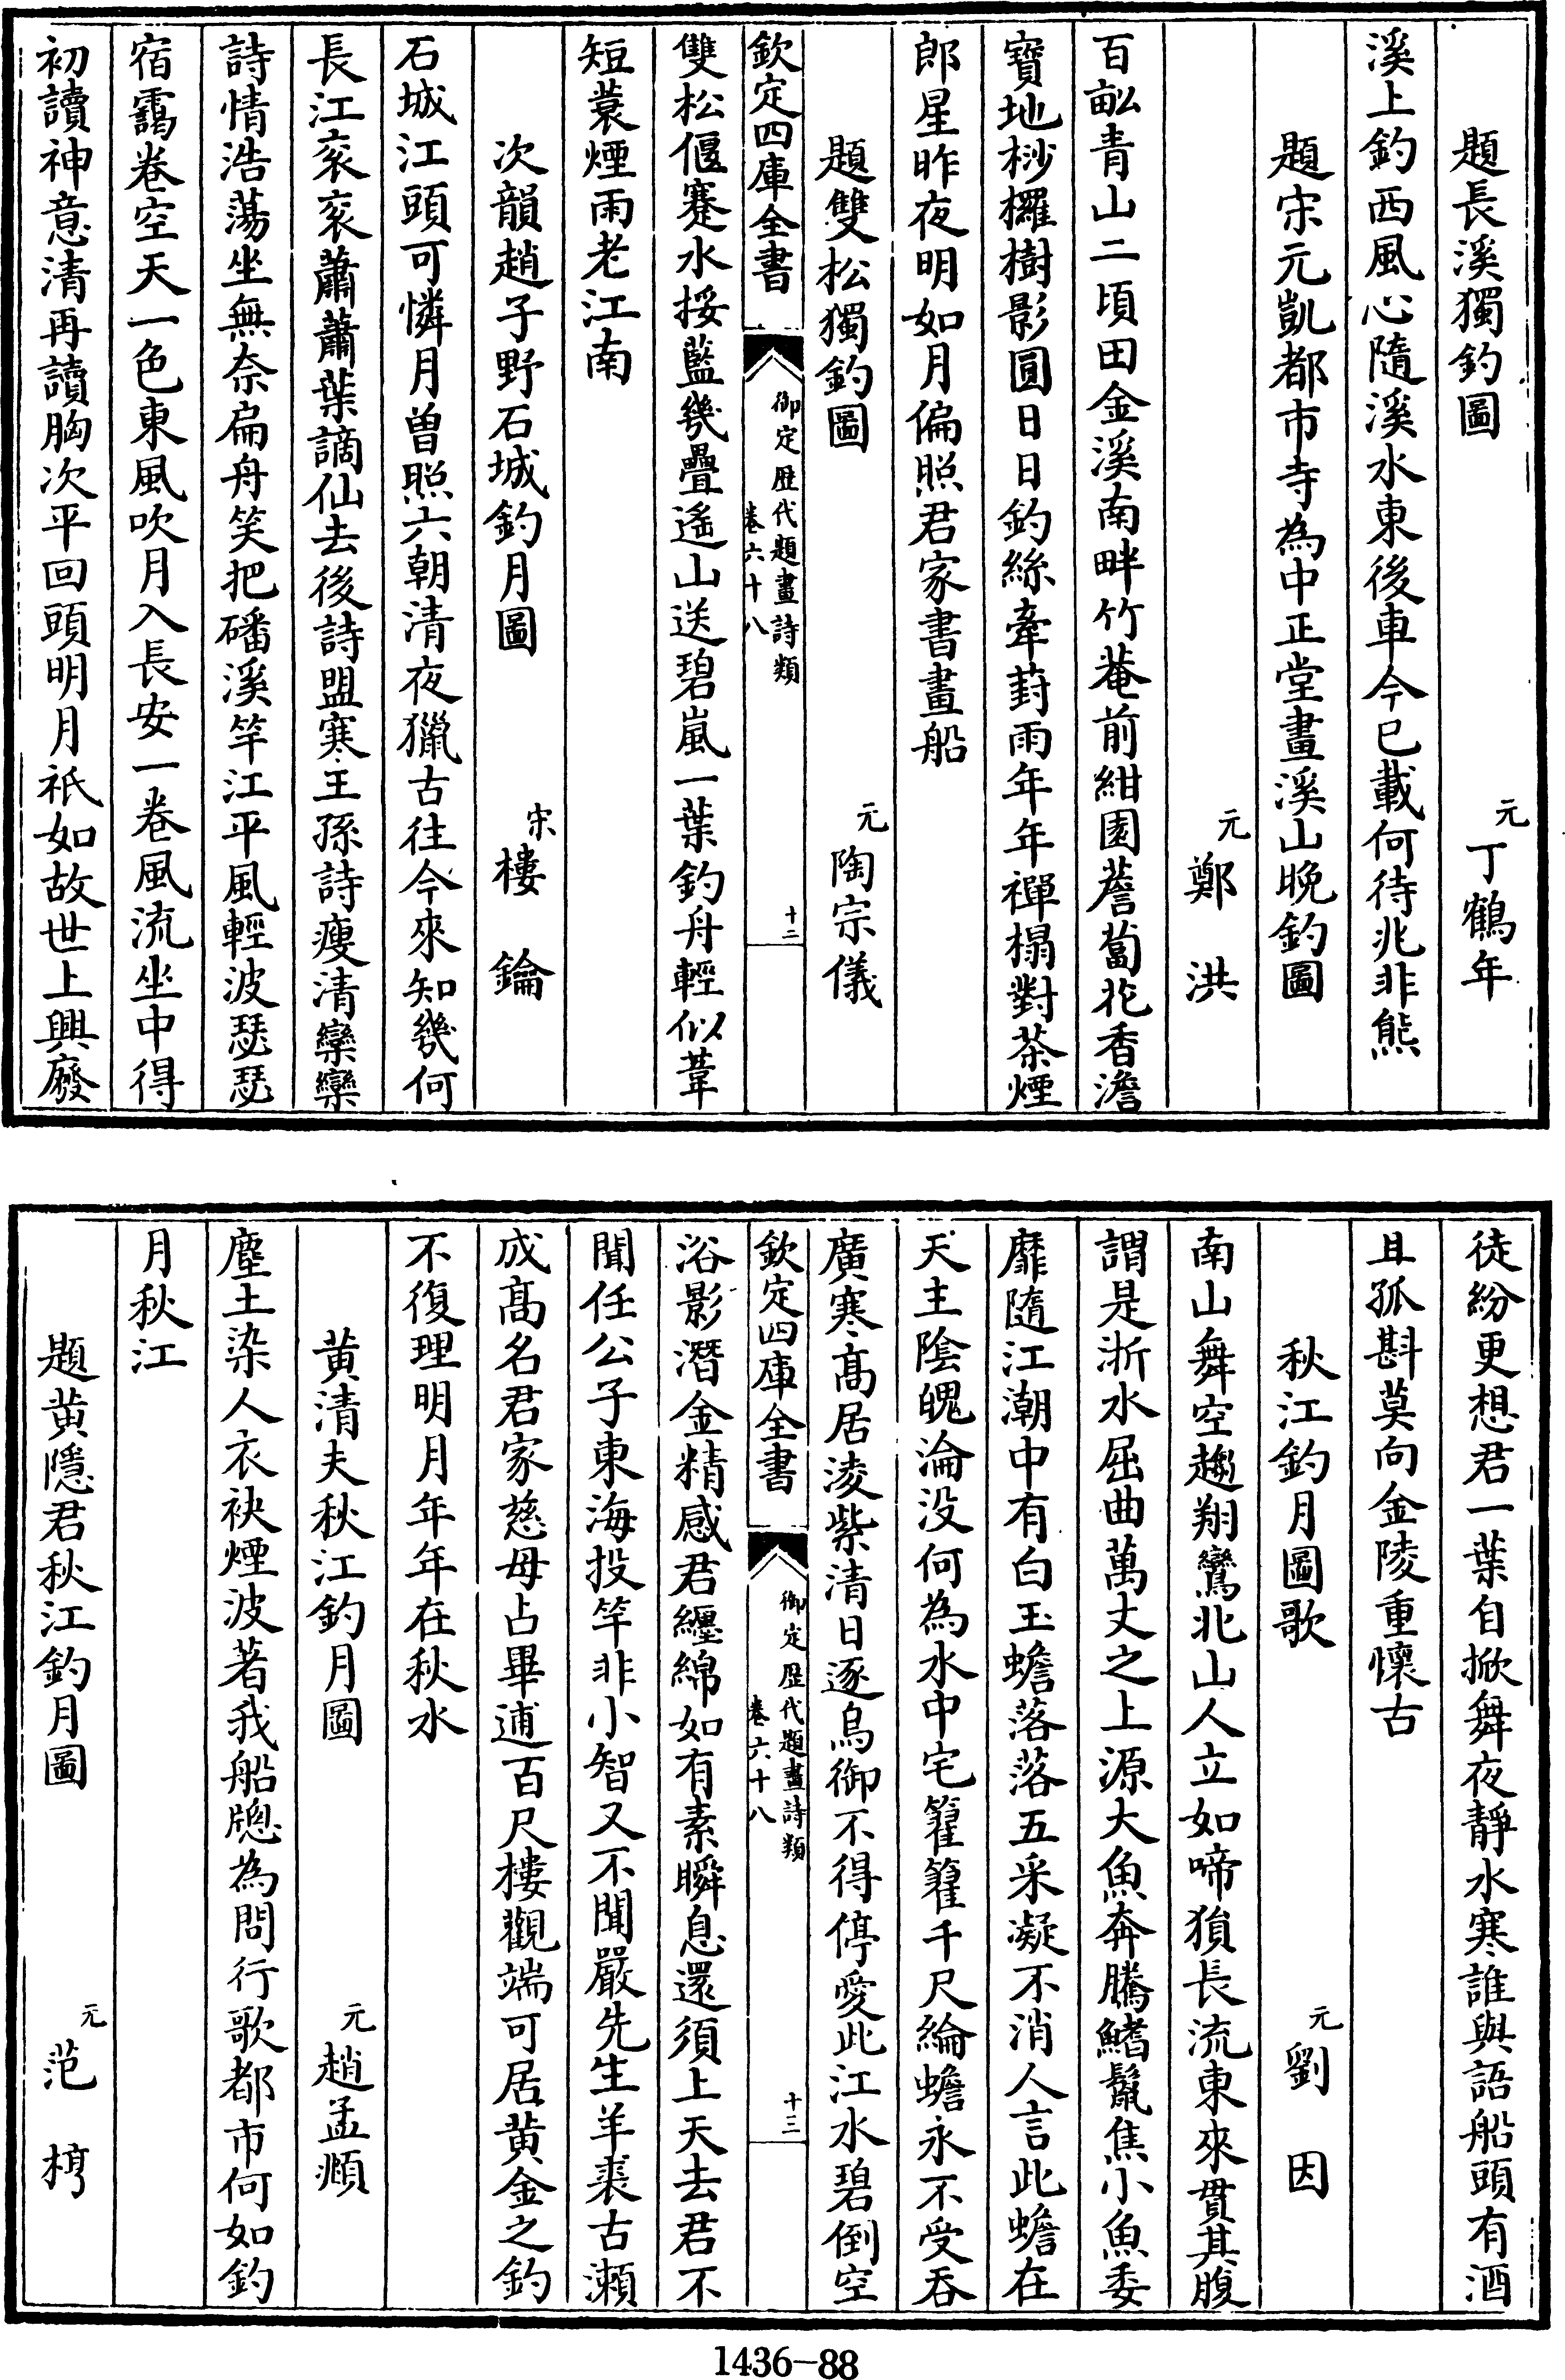 題長溪獨釣圖
元丁鶴年
溪上釣西風心隨溪水東後車今已載何待兆非熊
題宋元凱都市寺為中正堂畫溪山晚釣圖
元鄭洪
百畝青山二頃田金溪南畔竹菴前紺園薝蔔花香澹
寶地桫欏樹影圓日日釣絲牽葑雨年年禪榻對茶煙
郎星昨夜明如月偏照君家書畫船
題雙松獨釣圖
元陶宗儀
欽定四庫全書
御定歷代題畫詩類
卷六十八
十二
雙松偃蹇水挼藍幾疊遙山送碧嵐一葉釣舟輕似葦
短蓑煙雨老江南
次韻趙子野石城釣月圖
宋樓鑰
石城江頭可憐月曾照六朝清夜獵古往今來知幾何
長江衮衮蕭蕭葉謫仙去後詩盟寒王孫詩瘦清欒欒
詩情浩蕩坐無奈扁舟笑把磻溪竿江平風輕波瑟瑟
宿靄卷空天一色東風吹月入長安一卷風流坐中得
初讀神意清再讀胸次平回頭明月祇如故世上興廢
徒紛更想君一葉自掀舞夜靜水寒誰與語船頭有酒
且孤斟莫向金陵重懷古
秋江釣月圖歌
元劉因
南山舞空趨翔鸞北山人立如啼狽長流東來貫其腹
謂是浙水屈曲萬丈之上源大魚奔騰鰭鬛焦小魚委
靡隨江潮中有白玉蟾落落五采凝不消人言此蟾在
天主陰魄淪没何為水中宅籊籊千尺綸蟾永不受吞
廣寒高居淩紫清日逐烏御不得停愛此江水碧倒空
欽定四庫全書
御定歷代題畫詩類
卷六十八
十三
浴影潛金精感君纒綿如有素瞬息還須上天去君不
聞任公子東海投竿非小智又不聞嚴先生羊裘古瀨
成高名君家慈母占畢逋百尺樓觀端可居黄金之釣
不復理明月年年在秋水
黄清夫秋江釣月圖
元趙孟頫
塵土染人衣袂煙波著我船牎為問行歌都市何如釣
月秋江
題黄隱君秋江釣月圖
元范梈
1436-88